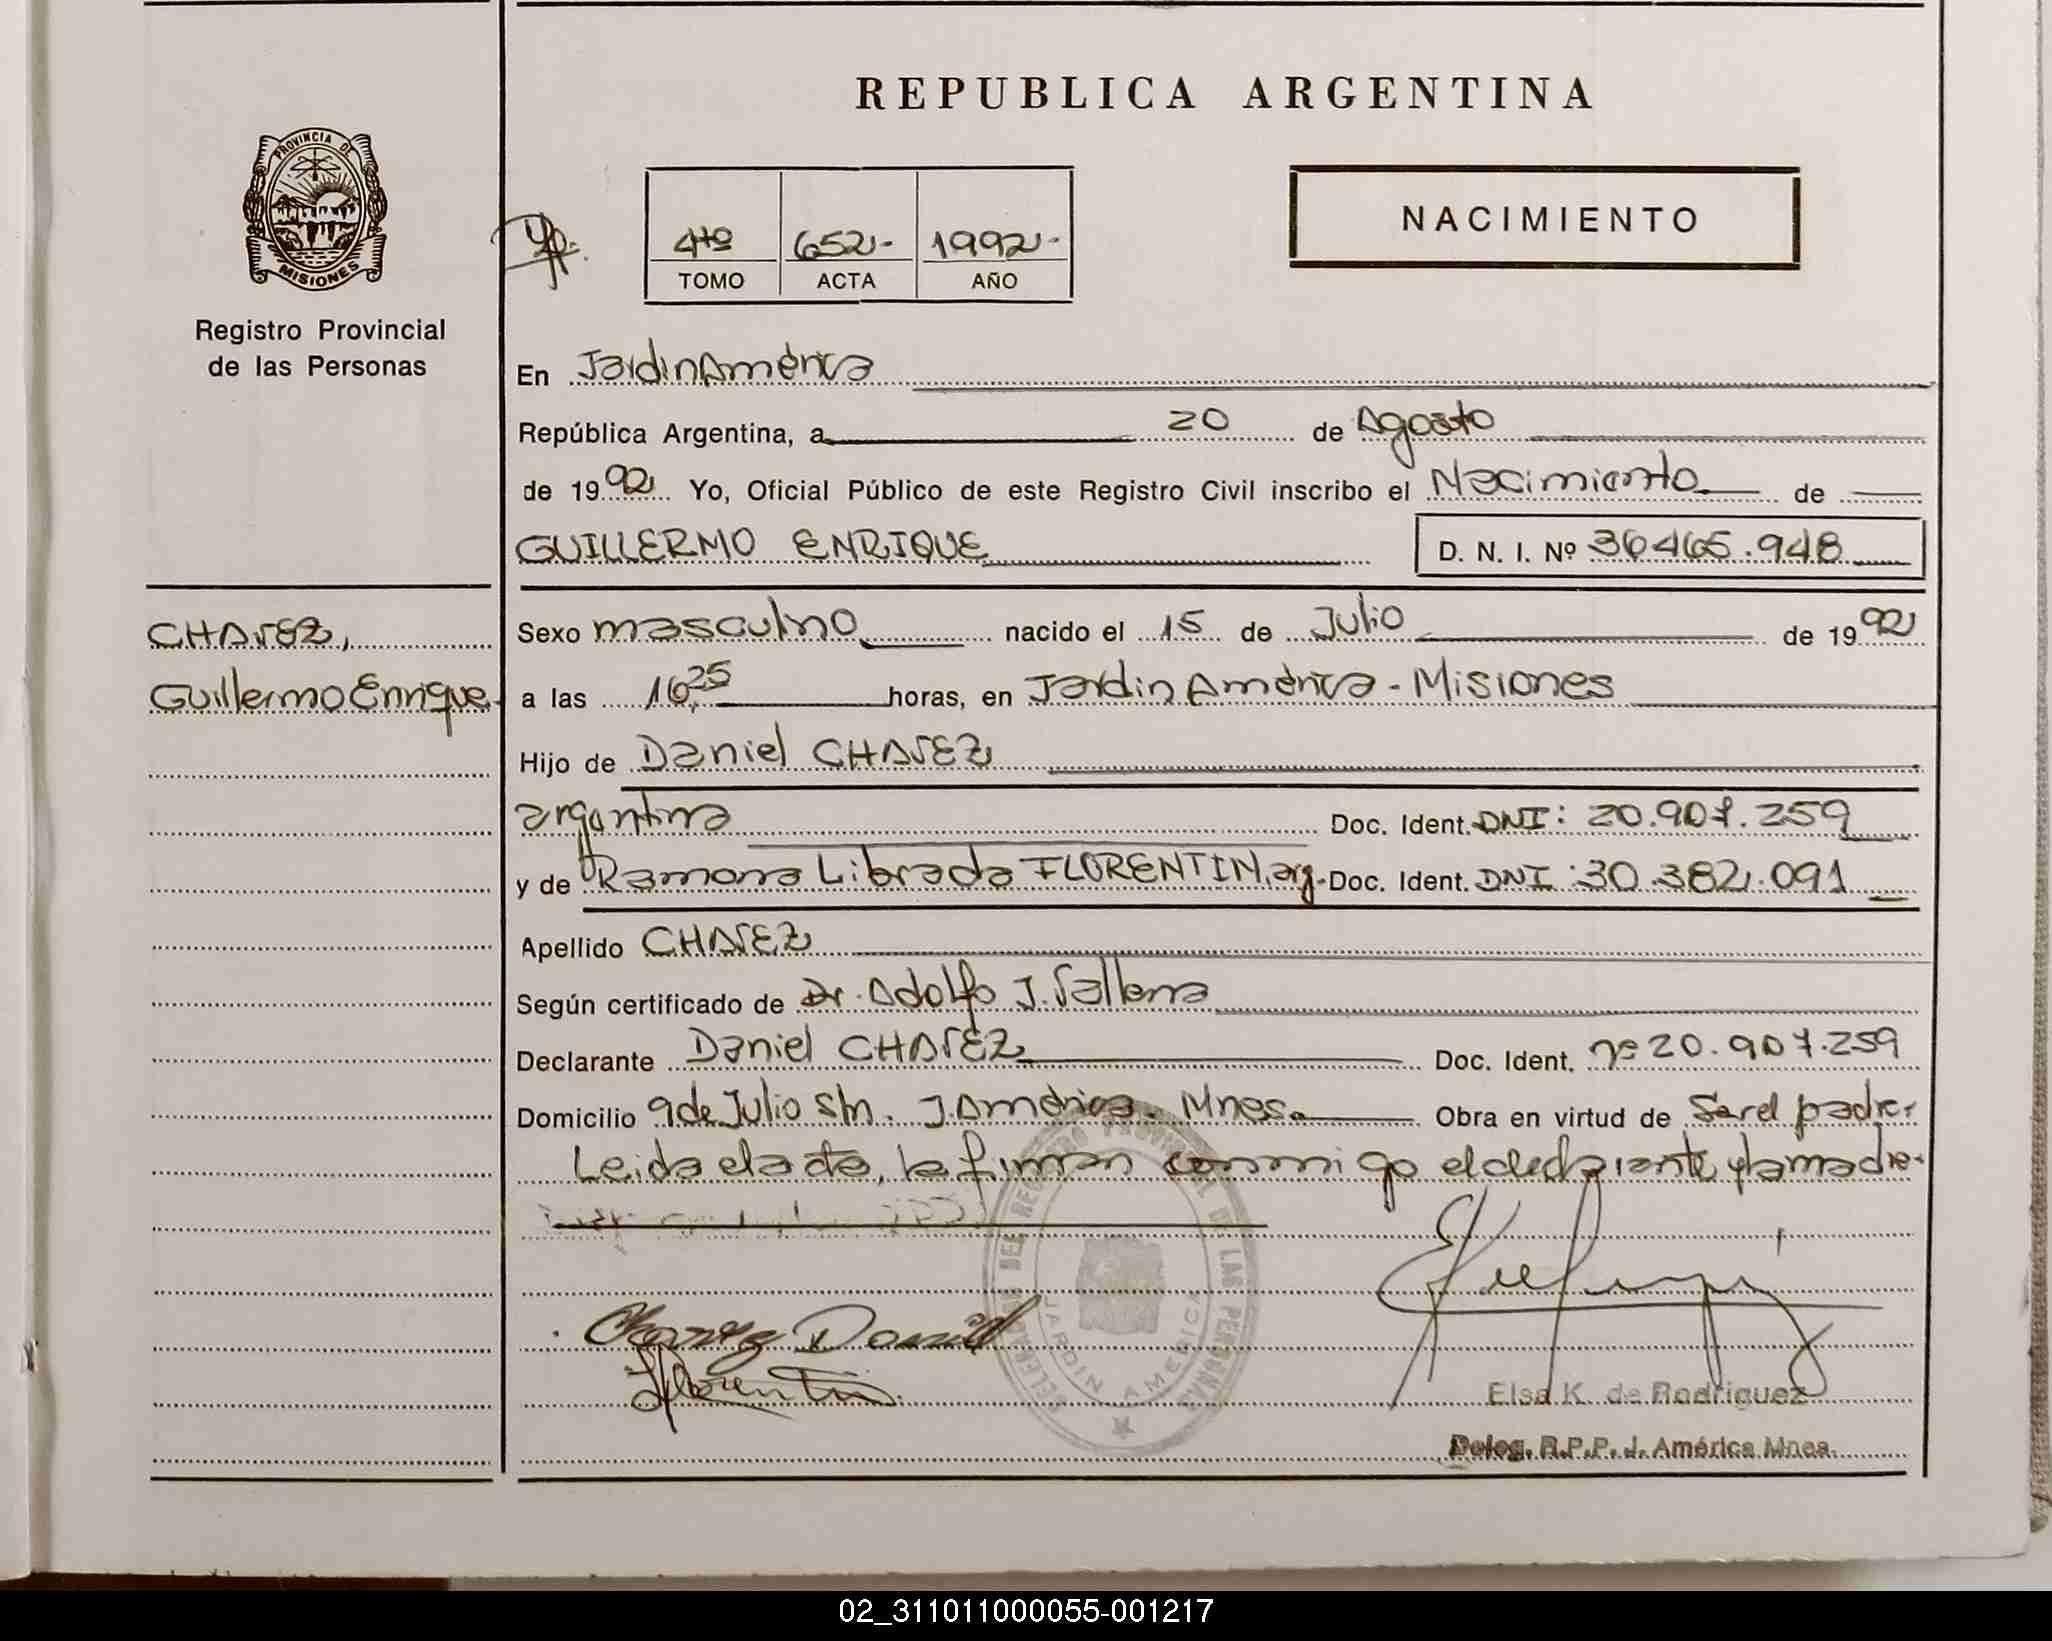 REPUBLICA ARGENTINA
PROVINCIA DE MISIONES
Registro Provincial
de las Personas
4to 652- 1992-
TOMO ACTA AÑO
NACIMIENTO
En Jardin América
República Argentina, a 20 de Agosto
de 1992 Yo, Oficial Público de este Registro Civil inscribo el Nacimiento de
GUILLERMO ENRIQUE D. N. I. Nº 36465.948
CHAVEZ,
Guillermo Enrique
Sexo masculino nacido el 15 de Julio de 1992
a las 16,25 horas, en Jardin América - Misiones
Hijo de Daniel CHAVEZ
argentina Doc. Ident. DNI: 20.907.259
y de Ramona Librada FLORENTIN, arg. Doc. Ident. DNI: 30.382.091
Apellido CHAVEZ
Según certificado de Dr. Adolfo J.
Declarante Daniel CHAVEZ Doc. Ident. nº 20.907.259
Domicilio 9 de Julio s/n. J. América. Mnes. Obra en virtud de Ser el padre.
Leida el acta, la firman conmigo el declarante y la madre.
Chavez Daniel
Florentin
DELEGACION DEL REGISTRO PROVINCIAL DE LAS PERSONAS
JARDIN AMERICA
Elsa K. de Rodriguez
Deleg. R.P.P. J. América Mnes.
02_311011000055-001217